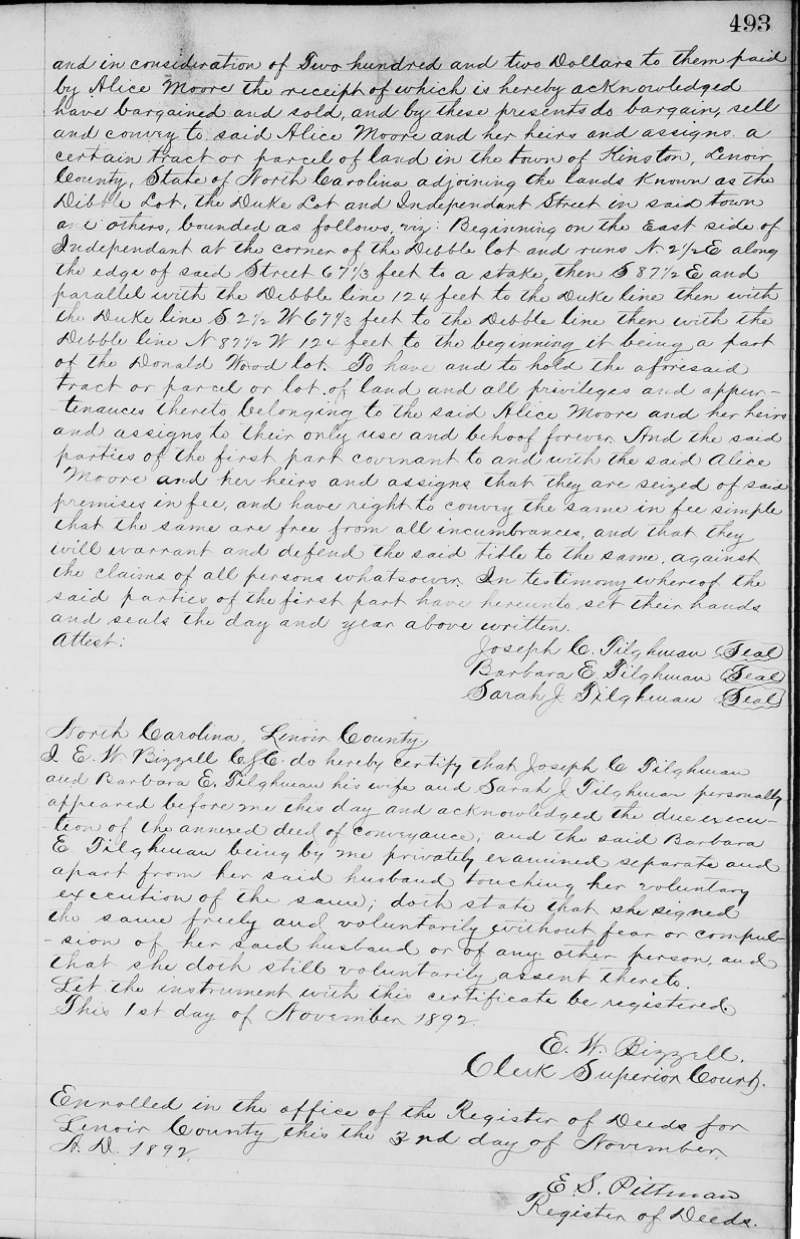 493
and in consideration of Two hundred and two Dollars to them paid
by Alice Moore the receipt of which is hereby acknowledged
have bargained and sold, and by these presents do bargain, sell
and convey to said Alice Moore and her heirs and assigns a
certain tract or parcel of land in the town of Kinston, Lenoir
County, State of North Carolina adjoining the lands known as the
Dibble Lot, the Duke Lot and Independant Street in said town
and others, bounded as follows, viz: Beginning on the East side of
Independant at the corner of the Debble lot and runs N. 2 1/2 E along
the edge of said Street 67 1/3 feet to a stake, then S 87 1/2 E and
parallel with the Debble line 124 feet to the Duke line then with
the Duke line S 2 1/2 W 67 1/3 feet to the Debble line then with the
Debble line N 87 1/2 W 124 feet to the beginning it being a part
of the Donald Wood lot. To have and to hold the aforesaid
tract or parcel or lot of land and all privileges and appur-
-tenances thereto belonging to the said Alice Moore and her heirs
and assigns to their only use and behoof forever. And the said
parties of the first part covenant to and with the said Alice
Moore and her heirs and assigns that they are seized of said
premises in fee, and have right to convey the same in fee simple
that the same are free from all incumbrances, and that they
will warrant and defend the said title to the same, against
the claims of all persons whatsoever. In testimony whereof the
said parties of the first part have hereunto set their hands
and seals the day and year above written.
Attest:
Joseph C. Tilghman (Seal)
Barbara E Tilghman (Seal)
Sarah J Tilghman (Seal)
North Carolina, Lenoir County,
I E. W. Bizzell C.S.C. do hereby certify that Joseph C Tilghman
and Barbara E. Tilghman his wife and Sarah J Tilghman personally
appeared before me this day and acknowledged the due execu-
tion of the annexed deed of conveyance; and the said Barbara
E Tilghman being by me privately examined separate and
apart from her said husband touching her voluntary
execution of the same; doth state that she signed
the same freely and voluntarily without fear or compul-
-sion of her said husband or of any other person, and
that she doth still voluntarily assent thereto.
Let the instrument with this certificate be registered.
This 1st day of November 1892
E. W. Bizzell.
Clerk Superior Court.
Enrolled in the office of the Register of Deeds for
Lenoir County this the 3nd day of November
A. D. 1892
E. S. Pittman
Register of Deeds.